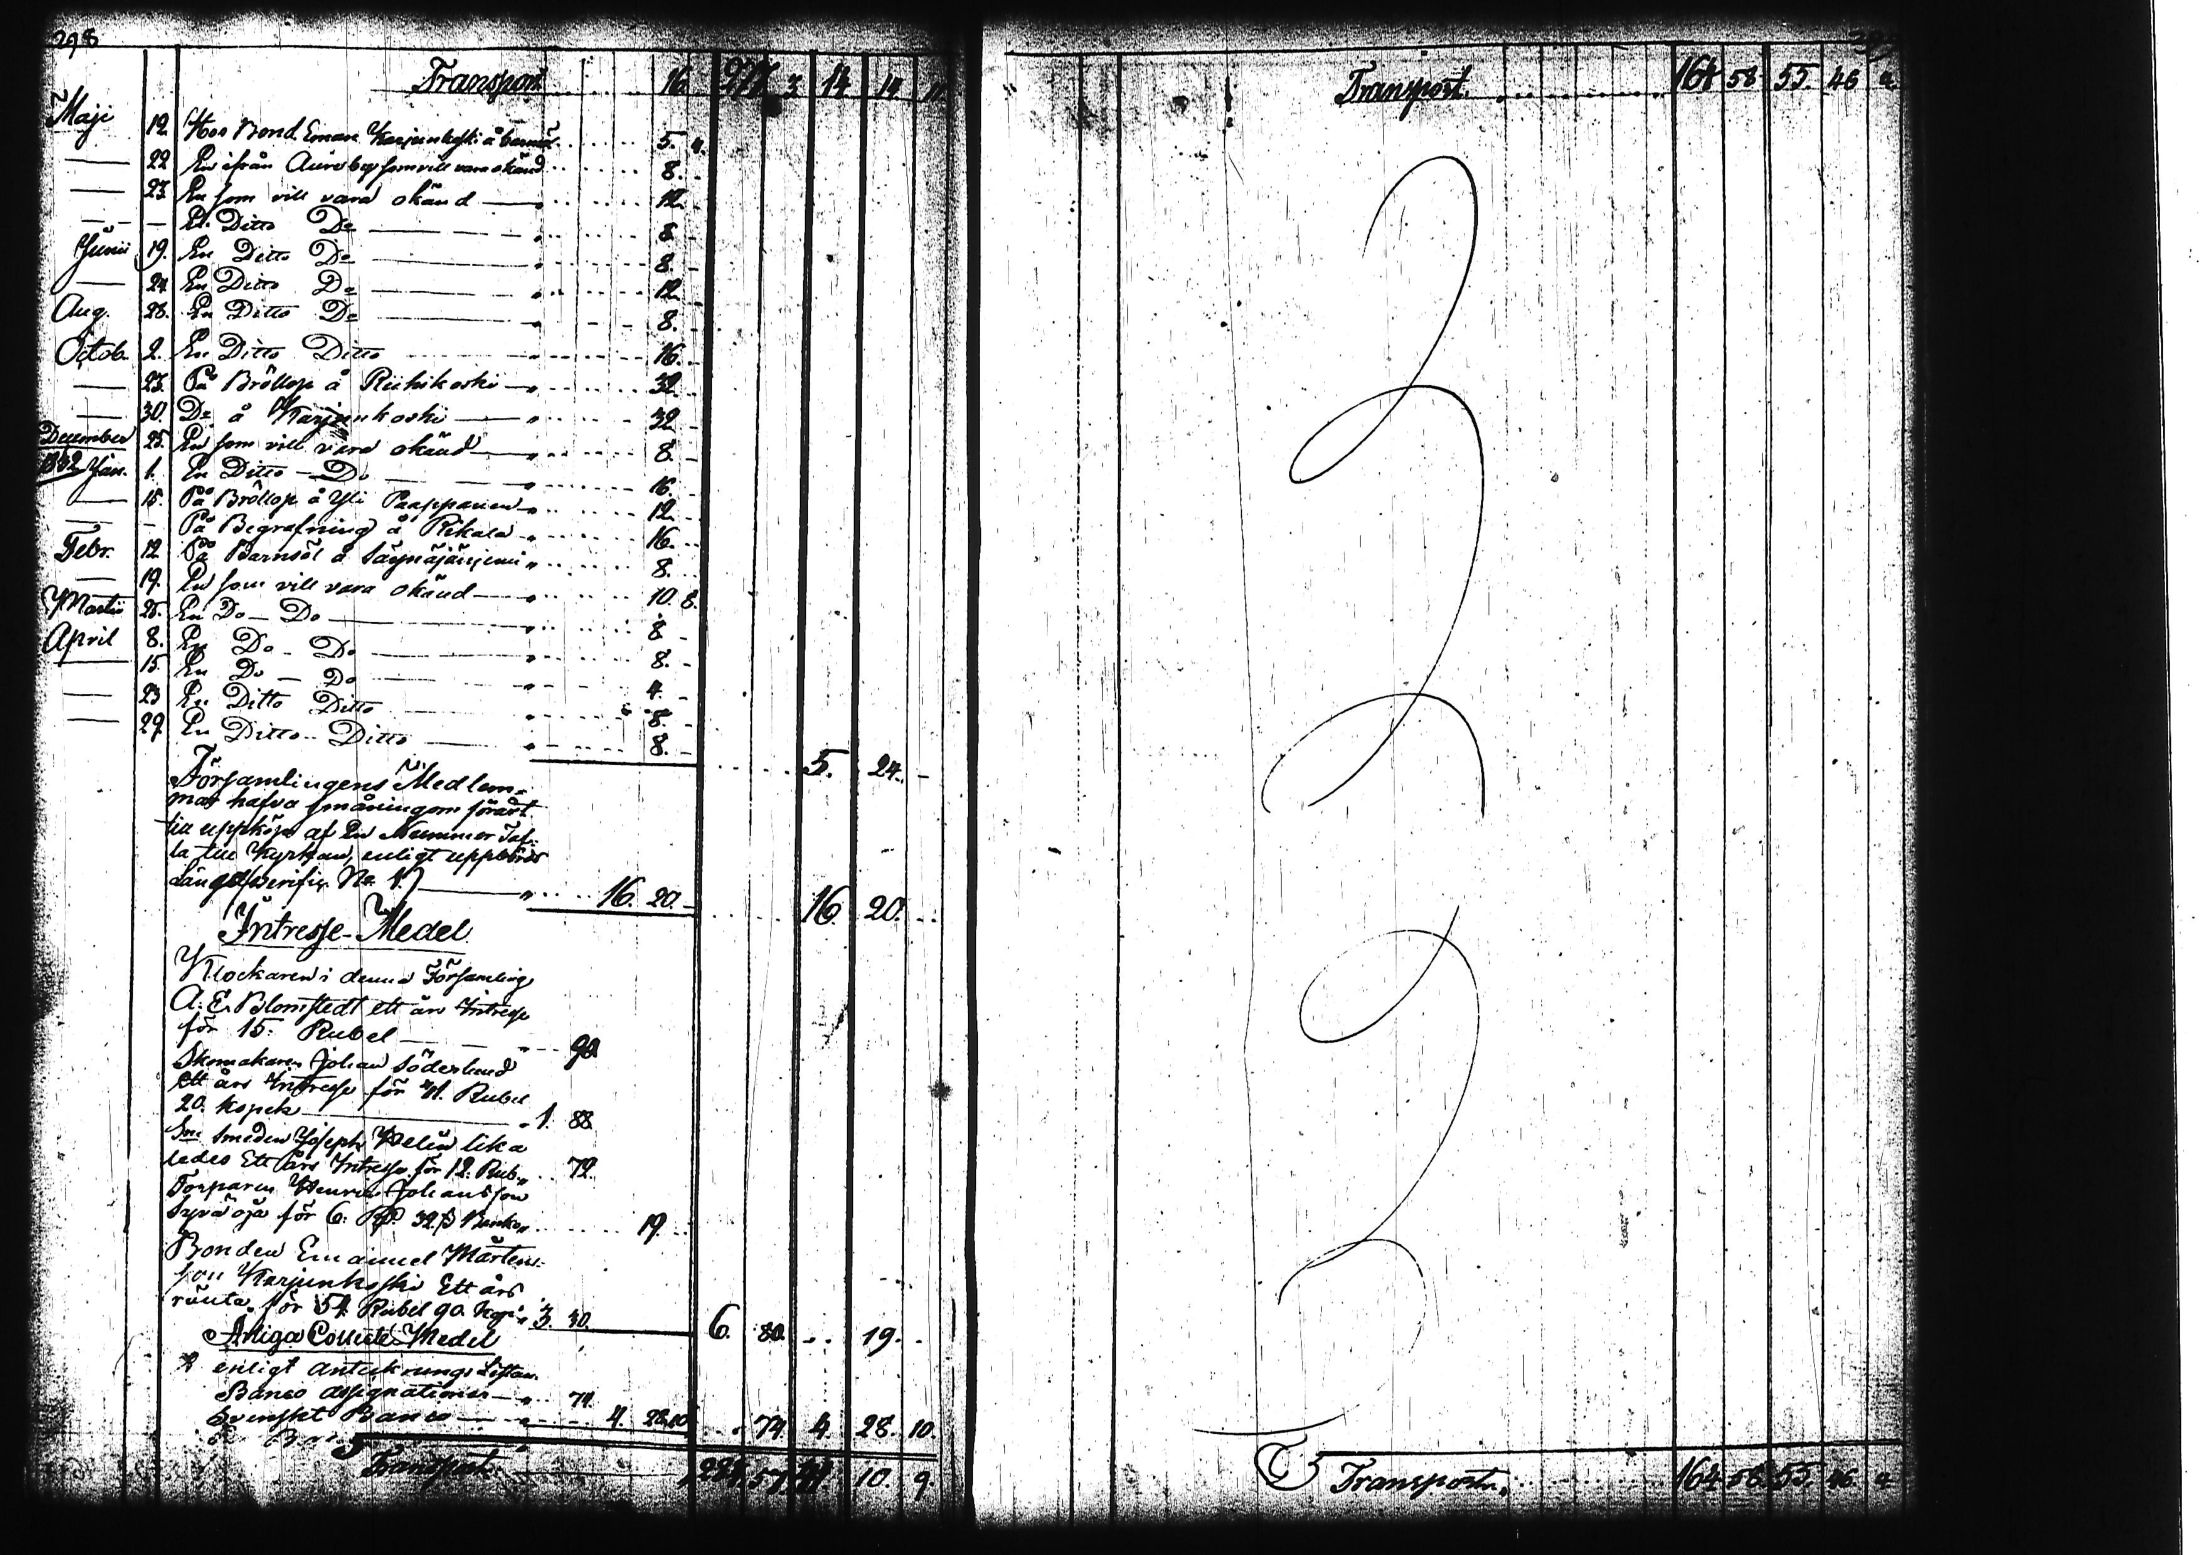 298
Transport 16. 277 3 14 14 11
Maji 12 Hos Bond. Eman Karjenkoski å barnsöl 5. 4.
22 En ifrån Aure by som vill vara okänd 8.
27. En som vill vara okänd 12
En Ditto Do 8
Junii 19. En Ditto Do 8.
24 En Ditto Do 12
Aug. 28. En Ditto Do 8.
Octob. 2. En Ditto Ditto 16.
23. På Bröllop å Riihikoski 32
30. Do å Karjenkoski 32
December 25. En som vill vara okänd 8.
1832 Jan. 1. En Ditto Do 16.
15. På Bröllop å Yli Paappanen 12
På Begrafning å Rikala 16.
Febr. 12 På Barnsöl å Säynäjänjemi 8.
19. En som vill vara okänd 10. 8.
Martii 25. En Do Do 8
April 8. En Do Do 8.
15 En Do Do 4.
23 En Ditto Ditto 8.
29. En Ditto Ditto 8.
5. 24.
Församlingens Medlem-
mar hafva småningom förärt
till uppköp af En Nummer Taf-
la till Kyrkan, enligt uppbörds
Längd (verific. No 1.) 16. 20. 16 20.
Intresse-Medel
Klockaren i denna Församling
A. E. Blomstedt ett års Intresse
för 15. Rubel 90
Skomakaren Johan Söderlund
ett års Intresse för 31. Rubel
20. kopek 1. 88
Sn: Smeden Joseph Welin lika
ledes Ett års Intresse för 12. Rub. 72.
Torparen Henric Johansson
Syväoja för 6. Rd. 32 ß Banko 19.
Bonden Emanuel Mårtens-
son Karjenkoski Ett års
ränta för 54. Rubel 90. kop. 3. 30.
6. 80. 19.
Årliga Collecte-Medel
enligt antecknings Listan
Banco assignationer 74.
Svenskt Banco 4. 28. 10 74 4. 28. 10.
Transport 284. 57. 41. 10. 9.
Transport 164 58 55. 46 a
Transport 164 58 55. 46. a